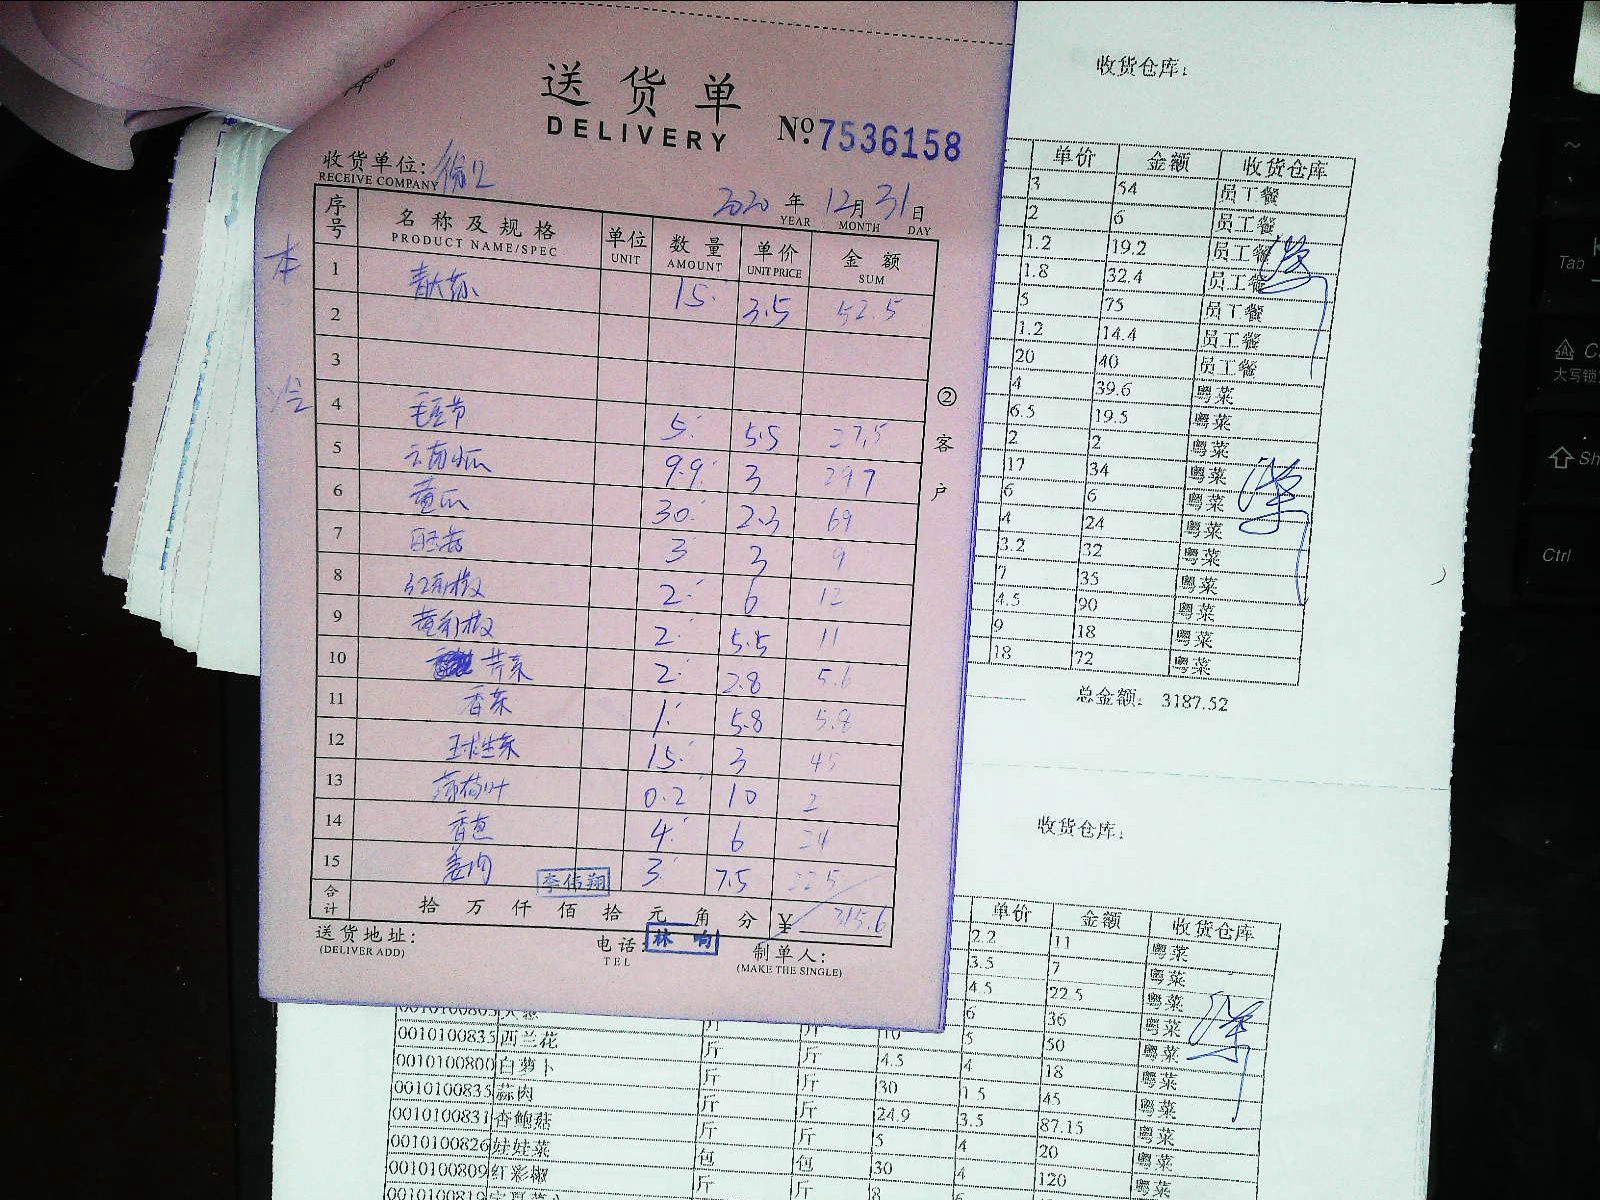 送货单
DELIVERY
No.7536158
收货单位:
RECEIVE COMPANY
2020年12月31日
YEAR MONTH DAY
序号 名称及规格 单位 数量 单价 金额
PRODUCT NAME/SPEC UNIT AMOUNT UNIT PRICE SUM
本
1 15 3.5 52.5
2
3
冷
4 毛豆节 5 5.5 27.5
5 云南小瓜 9.9 3 29.7
6 黄瓜 30 2.3 69
7 3 3 9
8 红彩椒 2 6 12
9 黄彩椒 2 5.5 11
10 芹菜 2 2.8 5.6
11 香菜 1 5.8 5.8
12 球生菜 15 3 45
13 薄荷叶 0.2 10 2
14 香葱 4 6 24
15 姜肉 3 7.5 22.5
李伟翔
合计 拾万仟佰拾元角分 ¥ 315.6
送货地址:
(DELIVER ADD)
电话:
TEL
林响
制单人:
(MAKE THE SINGLE)
②客户
收货仓库:
单价 金额 收货仓库
3 54 员工餐
2 6 员工餐
1.2 19.2 员工餐
1.8 32.4 员工餐
5 75 员工餐
1.2 14.4 员工餐
20 40 员工餐
4 39.6 粤菜
6.5 19.5 粤菜
2 2 粤菜
17 34 粤菜
6 6 粤菜
4 24 粤菜
3.2 32 粤菜
7 35 粤菜
4.5 90 粤菜
9 18 粤菜
18 72 粤菜
总金额: 3187.52
收货仓库:
单价 金额 收货仓库
2.2 11 粤菜
3.5 7 粤菜
4.5 22.5 粤菜
6 36 粤菜
0010100835 西兰花 斤 斤 10 5 50 粤菜
0010100800 白萝卜 斤 斤 4.5 4 18 粤菜
0010100835 蒜肉 斤 斤 30 1.5 45 粤菜
0010100831 杏鲍菇 斤 斤 24.9 3.5 87.15 粤菜
0010100826 娃娃菜 包 包 5 4 20 粤菜
0010100809 红彩椒 斤 斤 30 4 120 粤菜
Tab
大写锁
Ctrl